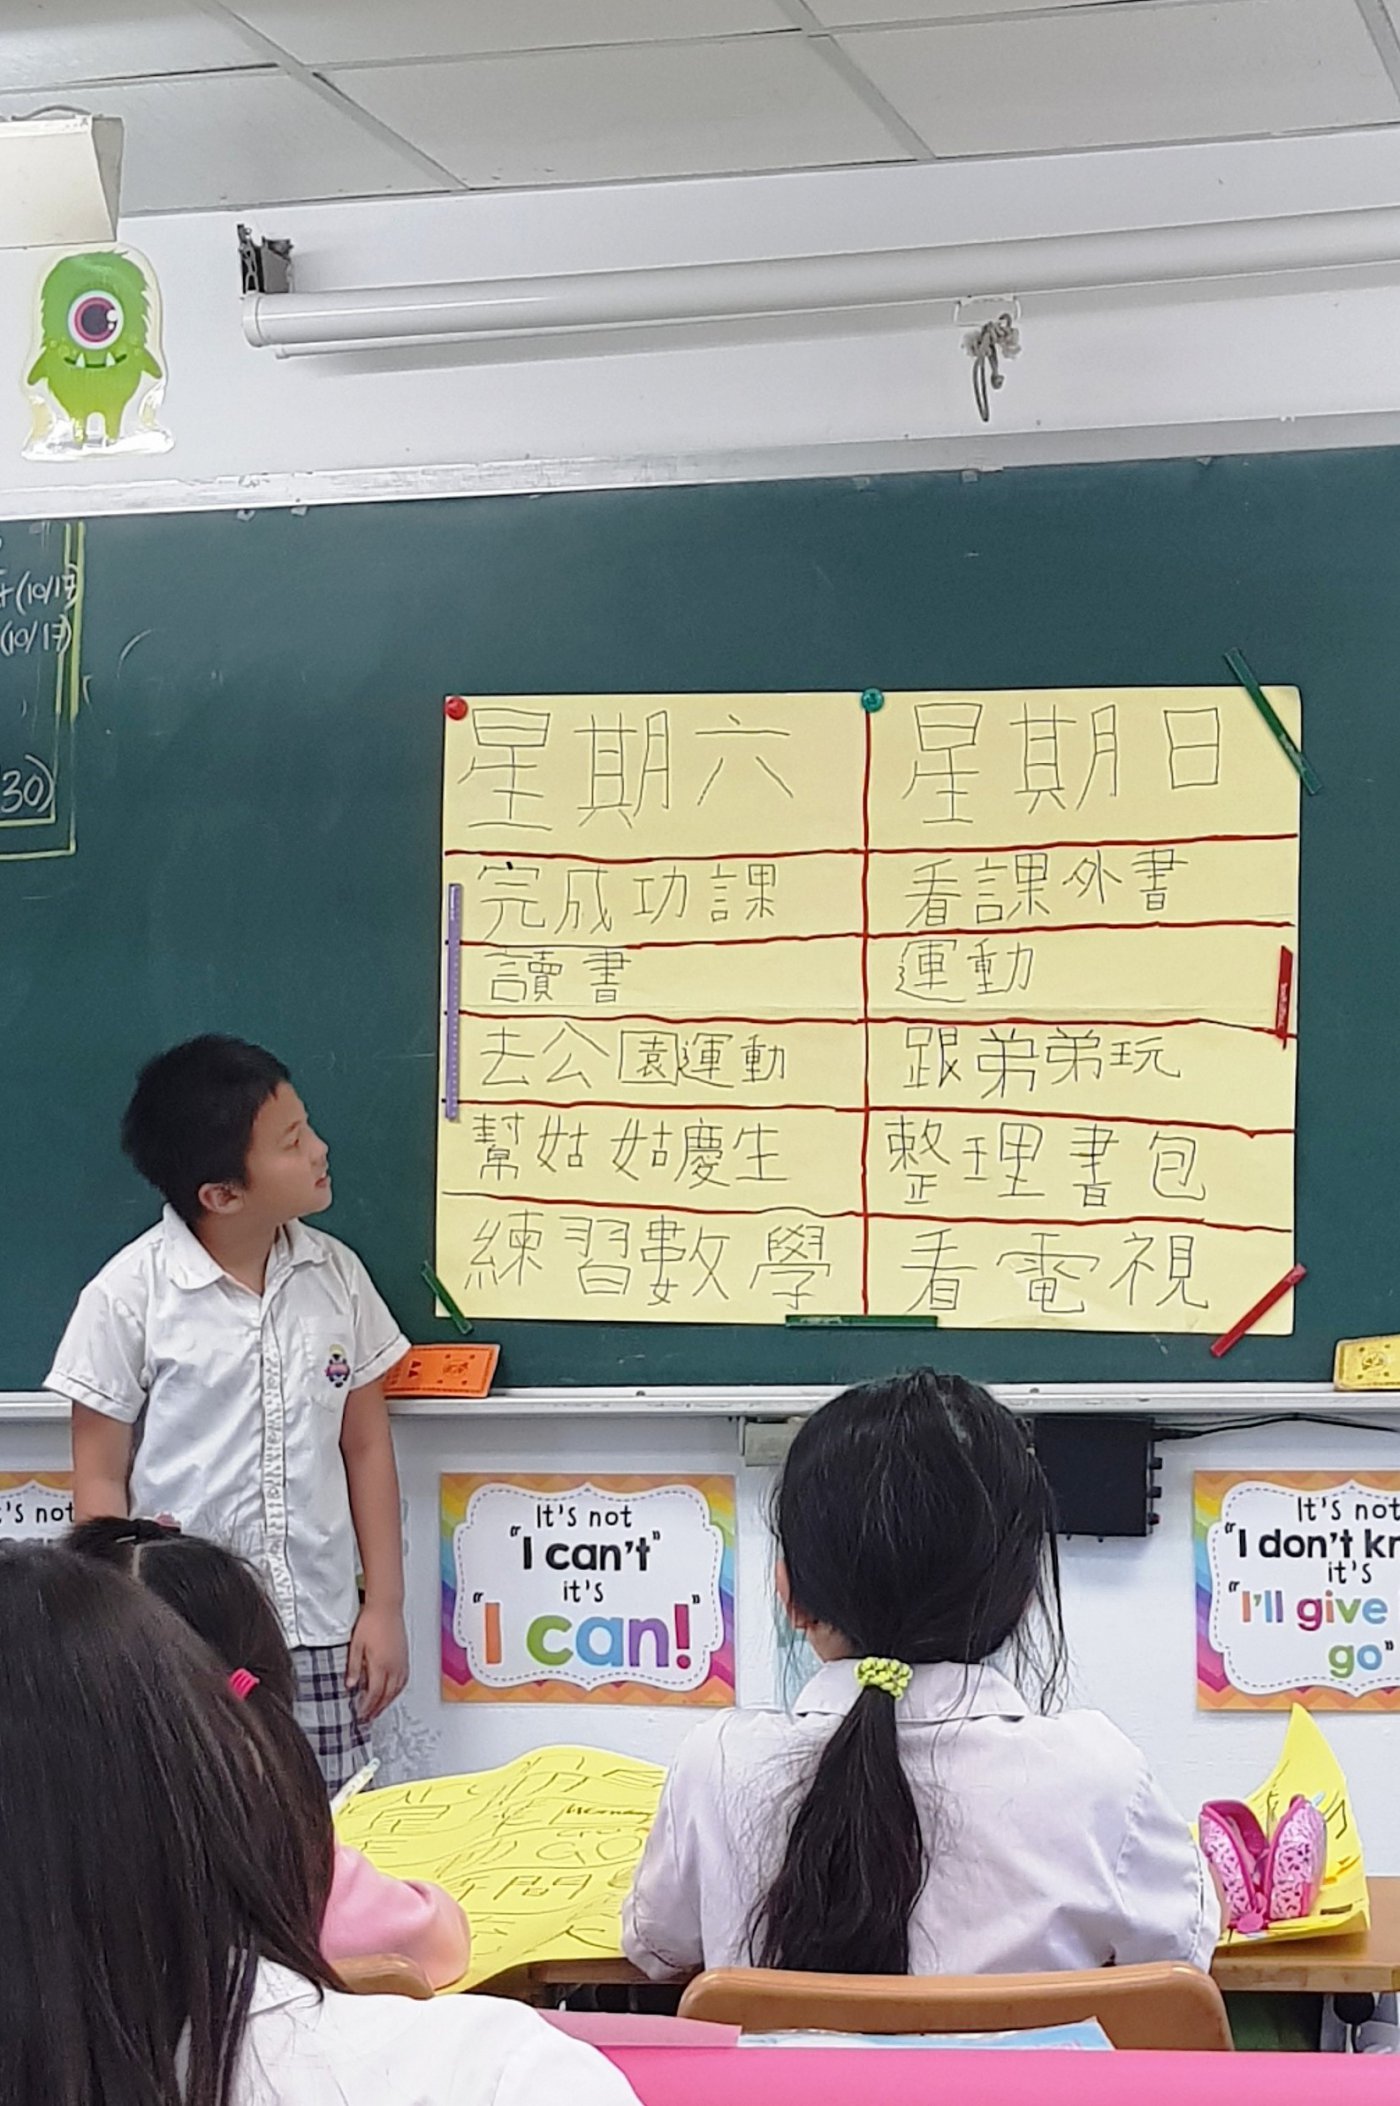 (10/17)
(10/17)
30)
星期六 星期日
完成功課 看課外書
讀書 運動
去公園運動 跟弟弟玩
幫姑姑慶生 整理書包
練習數學 看電視
's not
It's not
"I can't"
it's
"I can!"
It's not
"I don't
it's
"I'll give
go"